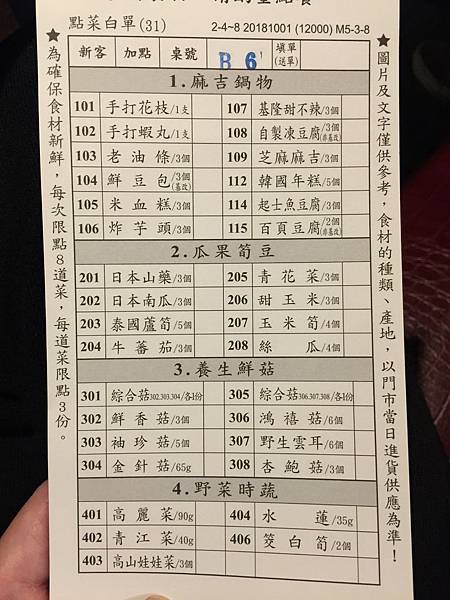 點菜白單(31)
2-4~8 20181001 (12000) M5-3-8
新客 加點 桌號 B 6 填單(送單)
★為確保食材新鮮，每次限點8道菜，每道菜限點3份。
1.麻吉鍋物
101 手打花枝/1支 107 基隆甜不辣/3個
102 手打蝦丸/1支 108 自製凍豆腐/3個(非基改)
103 老油條/3個 109 芝麻麻吉/3個
104 鮮豆包/3個(基改) 112 韓國年糕/5個
105 米血糕/3個 114 起士魚豆腐/3個
106 炸芋頭/3個 115 百頁豆腐/2個(非基改)
2.瓜果筍豆
201 日本山藥/3個 205 青花菜/3個
202 日本南瓜/3個 206 甜玉米/3個
203 泰國蘆筍/5個 207 玉米筍/4個
204 牛蕃茄/3個 208 絲瓜/4個
3.養生鮮菇
301 綜合菇302.303.304/各1份 305 綜合菇306.307.308/各1份
302 鮮香菇/3個 306 鴻禧菇/6個
303 袖珍菇/5個 307 野生雲耳/6個
304 金針菇/65g 308 杏鮑菇/3個
4.野菜時蔬
401 高麗菜/90g 404 水蓮/35g
402 青江菜/40g 406 筊白筍/2個
403 高山娃娃菜/3個
★圖片及文字僅供參考，食材的種類、產地，以門市當日進貨供應為準！